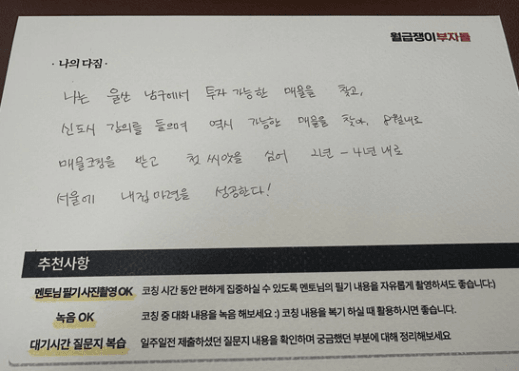 월급쟁이부자들
· 나의 다짐 ·
나는 울산 남구에서 투자 가능한 매물을 찾고,
신도시 강의를 들으며 역시 가능한 매물을 찾아, 8월내로
매물코칭을 받고 첫 씨앗을 심어 2년 - 4년 내로
서울에 내집마련을 성공한다!
추천사항
멘토님 필기 사진촬영 OK 코칭 시간 동안 편하게 집중하실 수 있도록 멘토님의 필기 내용을 자유롭게 촬영하셔도 좋습니다:)
녹음 OK 코칭 중 대화 내용을 녹음 해보세요 :) 코칭 내용을 복기 하실 때 활용하시면 좋습니다.
대기시간 질문지 복습 일주일전 제출하셨던 질문지 내용을 확인하며 궁금했던 부분에 대해 정리해보세요